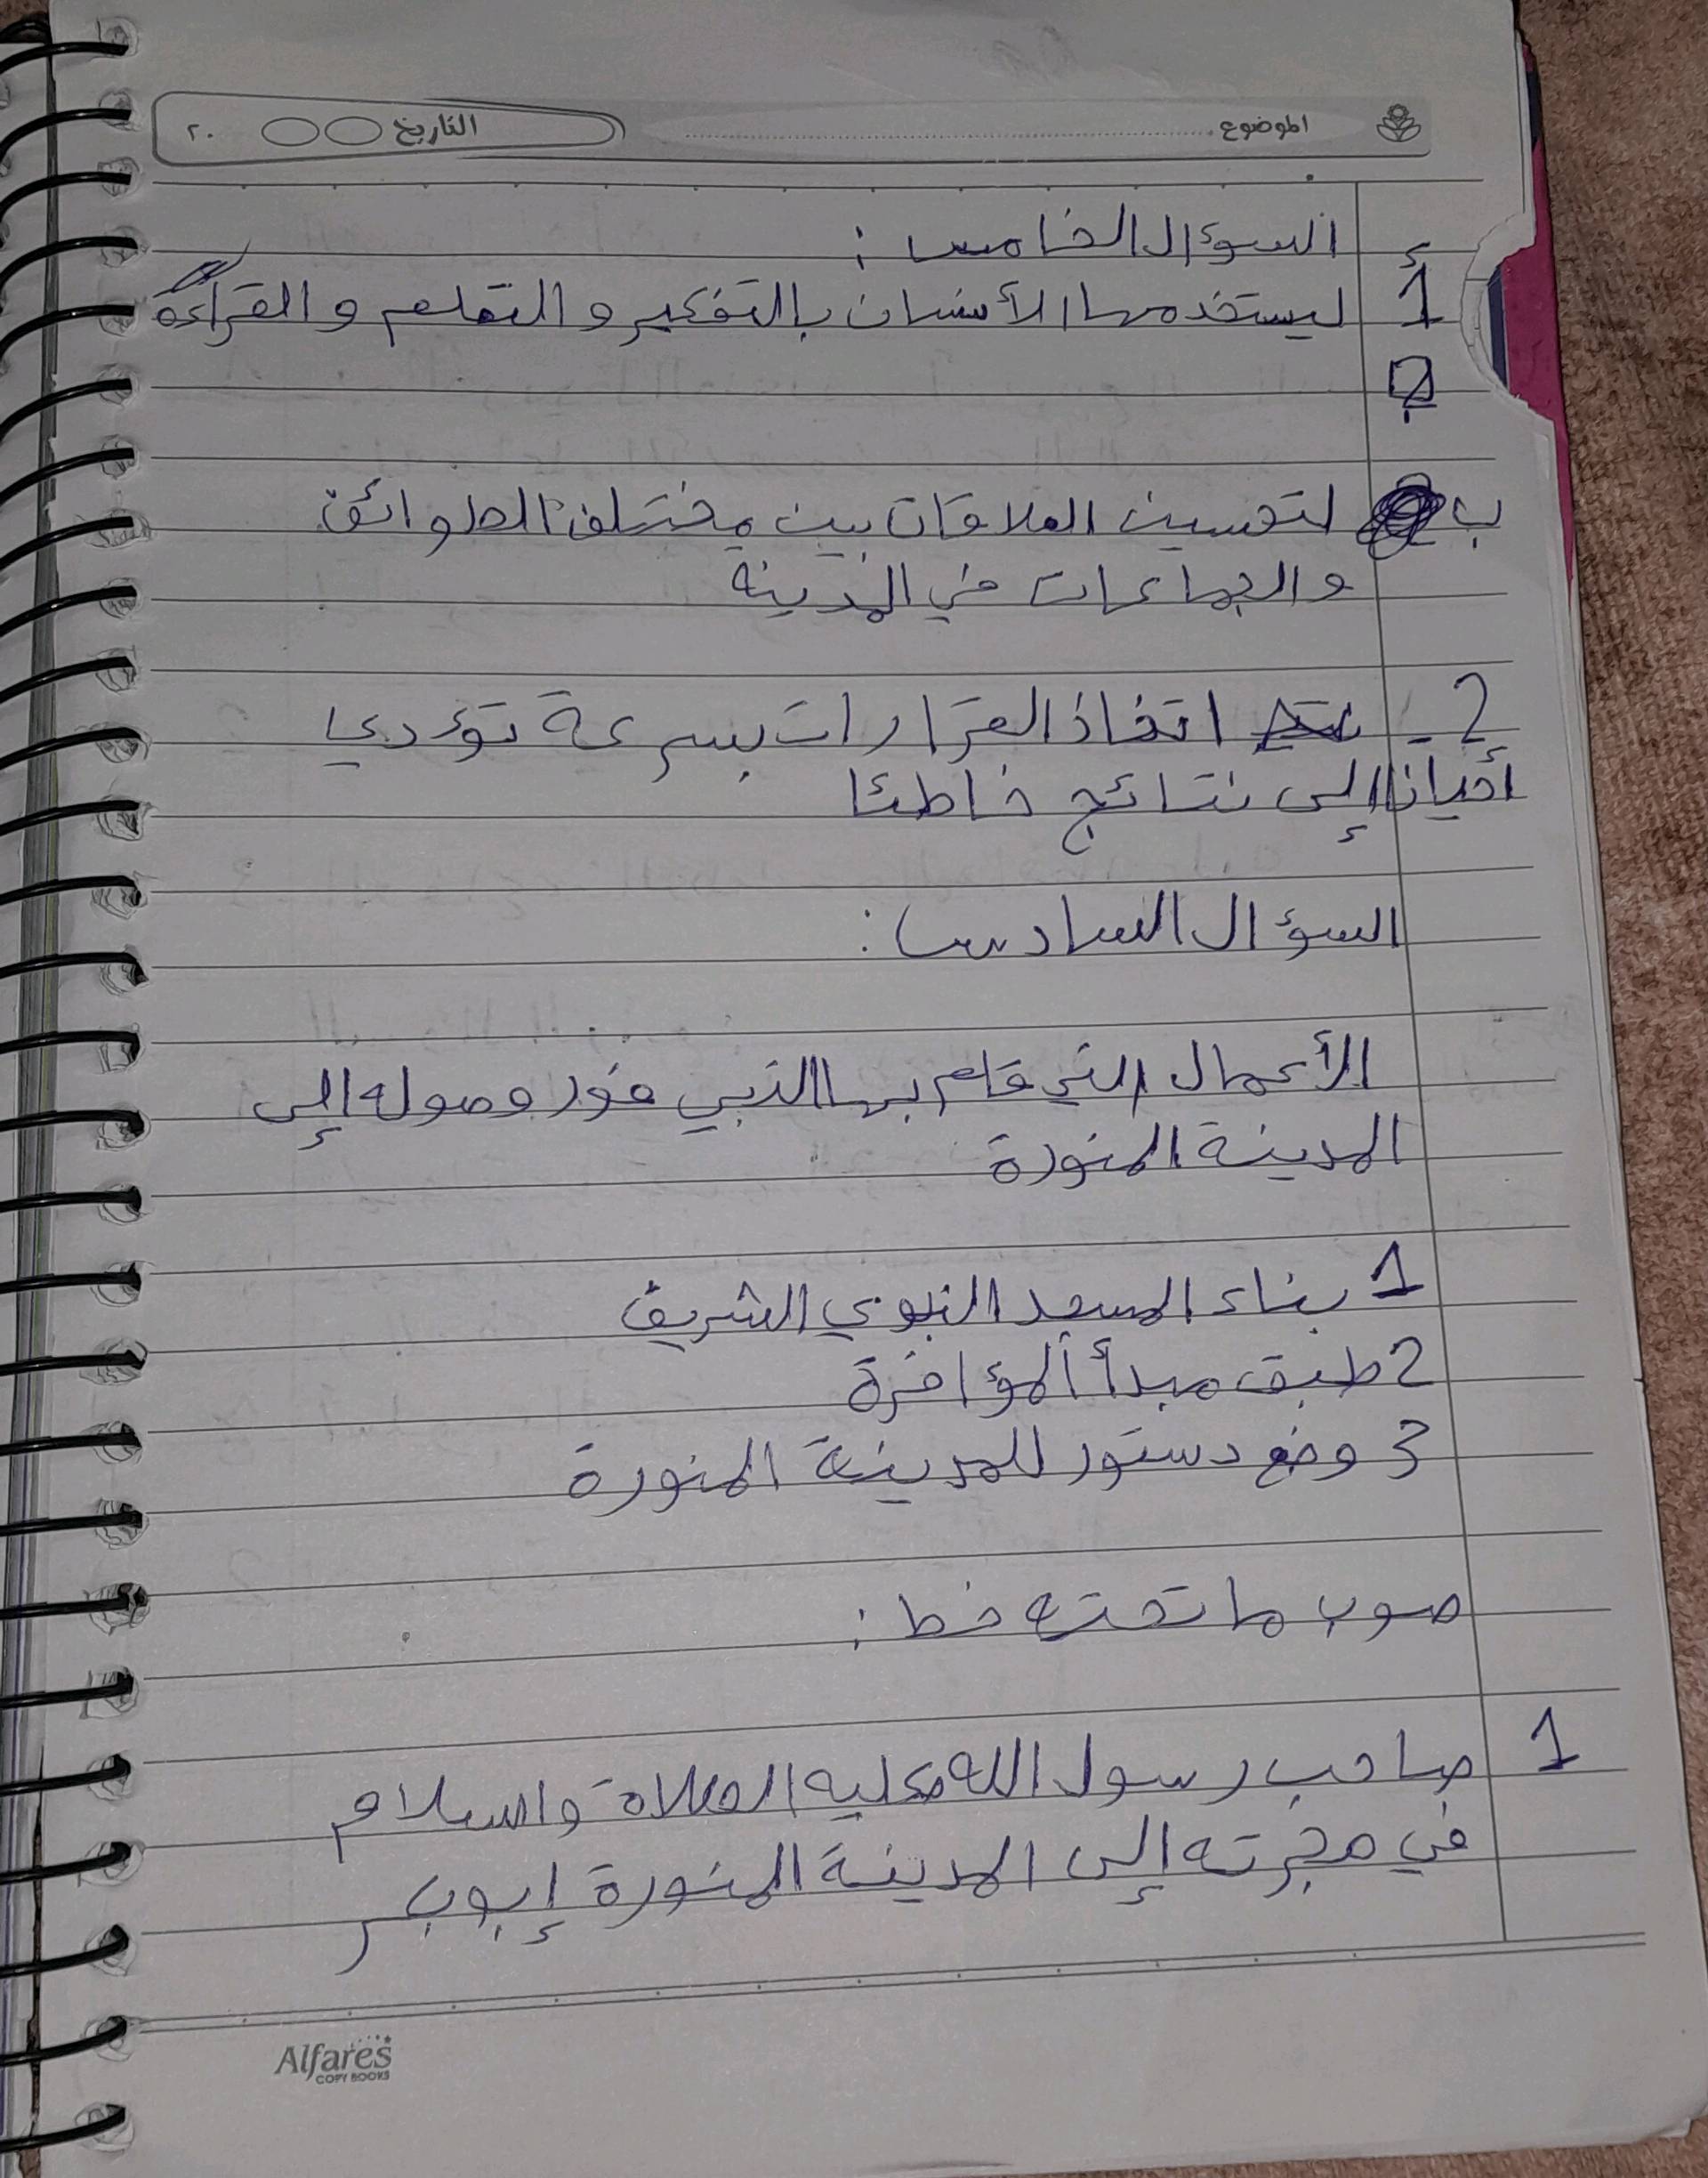 الموضوع
التاريخ ٢٠
السوءال الخامس :
أ 1 ليستخدمها الأنسان بالتفكير و التعلم و القراءة
2
ب لتحسين العلاقات بين مختلف الطوائف
والجماعات في المدينه
2 - اتخاذ القرارات بسرعة تؤدي
أحيانا إلى نتائج خاطئا
السؤال السادس :
الأعمال التي قام بها النبي فور وصوله إلى
المدينة المنورة
1 بناء المسجد النبوي الشريف
2 طبق مبدأ المؤاخرة
3 وضع دستور للمدينة المنورة
صوب ما تحته خط :
1 صاحب رسول الله عليه الصلاة والسلام
في هجرته إلى المدينة المنورة إبوب
Alfares
COPY BOOKS